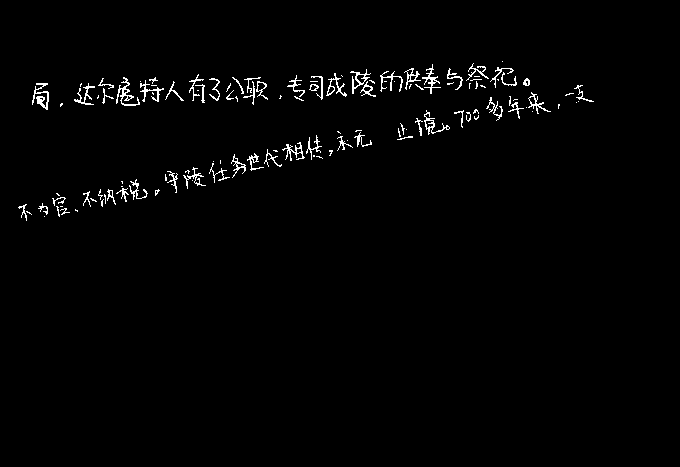 局，达尔扈特人有了公职，专司成陵的供奉与祭祀。
不为官、不纳税。守陵任务世代相传，永无 止境。700多年来，一支